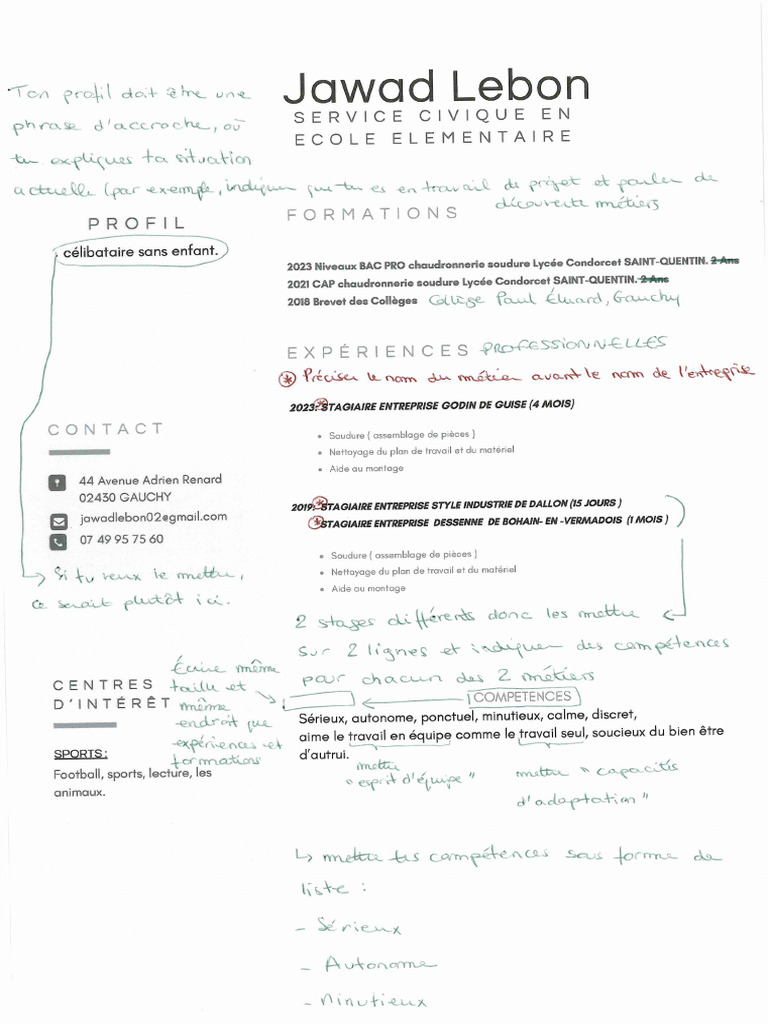 Jawad Lebon
SERVICE CIVIQUE EN
ECOLE ELEMENTAIRE
Ton profil doit être une
phrase d'accroche, où
tu expliques ta situation
actuelle (par exemple, indiquer que tu es en travail de projet et parler de
découverte métiers
PROFIL
célibataire sans enfant.
FORMATIONS
2023 Niveaux BAC PRO chaudronnerie soudure Lycée Condorcet SAINT-QUENTIN. 2 Ans
2021 CAP chaudronnerie soudure Lycée Condorcet SAINT-QUENTIN. 2 Ans
2018 Brevet des Collèges Collège Paul Éluard, Gauchy
EXPÉRIENCES PROFESSIONNELLES
* Préciser le nom du métier avant le nom de l'entreprise
2023: * STAGIAIRE ENTREPRISE GODIN DE GUISE (4 MOIS)
• Soudure ( assemblage de pièces )
• Nettoyage du plan de travail et du matériel
• Aide au montage
CONTACT
44 Avenue Adrien Renard
02430 GAUCHY
jawadlebon02@gmail.com
07 49 95 75 60
Si tu veux le mettre,
ce serait plutôt ici.
2019: * STAGIAIRE ENTREPRISE STYLE INDUSTRIE DE DALLON (15 JOURS )
* STAGIAIRE ENTREPRISE DESSENNE DE BOHAIN- EN -VERMADOIS (1 MOIS )
• Soudure ( assemblage de pièces )
• Nettoyage du plan de travail et du matériel
• Aide au montage
2 stages différents donc les mettre
sur 2 lignes et indiquer des compétences
pour chacun des 2 métiers
CENTRES
D'INTÉRÊT
SPORTS :
Football, sports, lecture, les
animaux.
Écrire même
taille et
même
endroit que
expériences et
formations
COMPETENCES
Sérieux, autonome, ponctuel, minutieux, calme, discret,
aime le travail en équipe comme le travail seul, soucieux du bien être
d'autrui.
mettre
"esprit d'équipe"
mettre "capacités
d'adaptation"
mettre tes compétences sous forme de
liste :
- Sérieux
- Autonome
- Minutieux